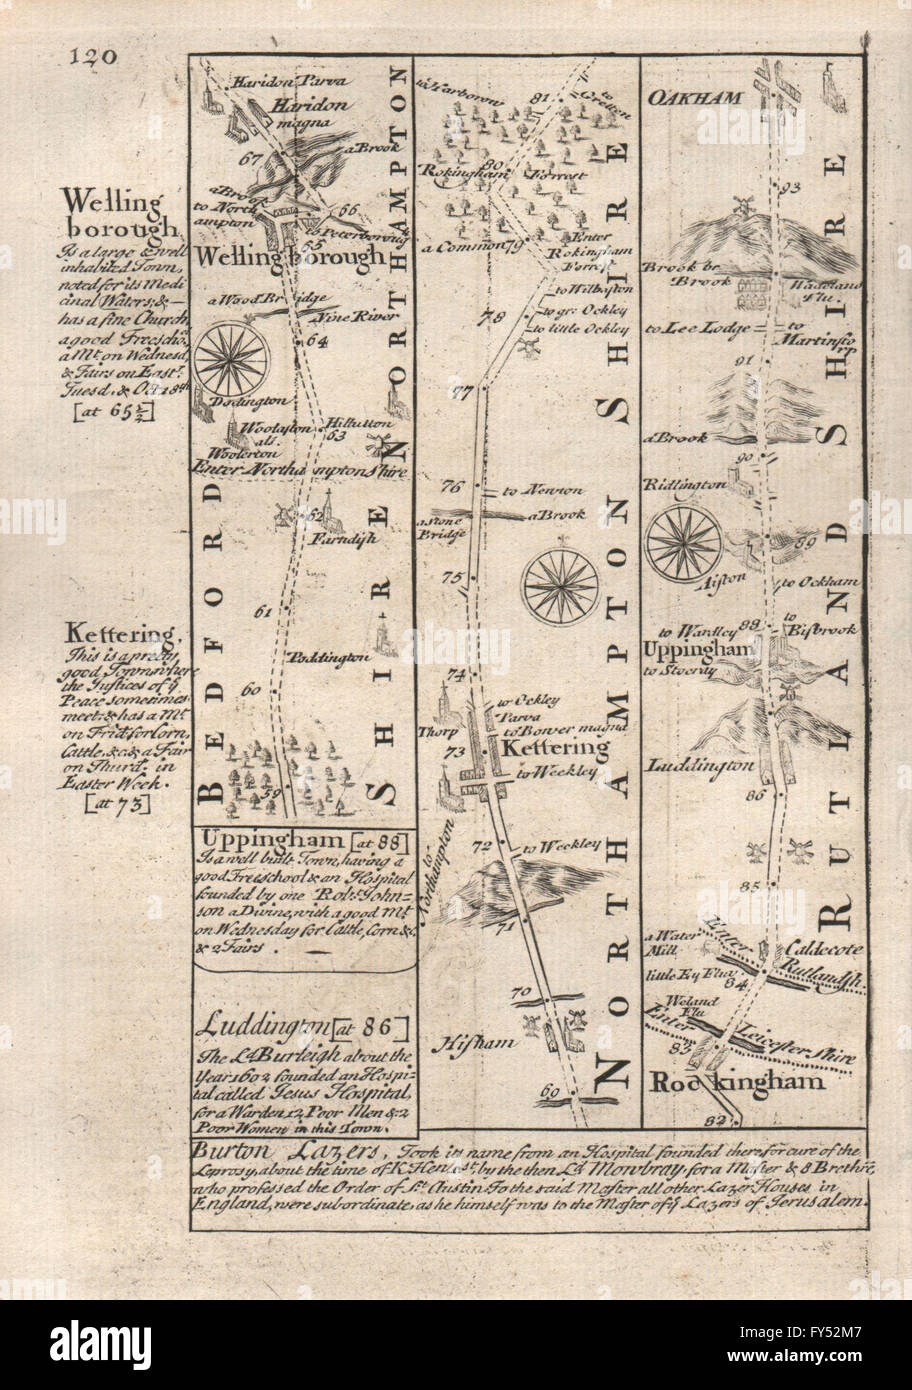 120
Welling
borough
Is a large & well
inhabited Town,
noted for its Medi
cinal Waters; &
has a fine Church
a good Freescho:
a Mt. on Wednesd,
& Fairs on East.
Tuesd. & Oct. 18th
[at 65½]
Kettering,
This is a pretty
good Town, where
the Justices of ye
Peace sometimes
meet: & has a Mt.
on Frid: for Corn,
Cattle, &c. & a Fair
on Thurd. in
Easter Week.
[at 73]
Haridon Parva
Haridon
magna
67
a Brook
a Brook
to North
ampton
66
to Peterborough
65
Wellingborough
a Wood Bridge
Nine River
64
Dodington
Woolaston
als.
Woolerton
Hiltutton
63
Enter Northamptonshire
62
Farndish
61
Poddington
60
59
BEDFORD
SHIRE
NORTHAMPTON
Uppingham [at 88]
Is a well built Town, having a
good Freeschool & an Hospital
founded by one Robt. John=
son a Divine, with a good Mt.
on Wednesday for Cattle, Corn &c.
& 2 Fairs.
Luddington [at 86]
The Ld. Burleigh about the
Year 1602 founded an Hospi=
tal called Jesus Hospital,
for a Warden 12 Poor Men & 2
Poor Women in this Town.
to Harborow
81
to Cretten
80
Rokingham Forrest
a Common 79
Enter
Rokingham
Forrest
to Wilbaston
78
to gr: Ockley
to little Ockley
77
76
to Newton
a stone
Bridge
a Brook
75
74
to Ockley
Parva
to Bower magna
Thorp
73
Kettering
to Weekley
to
Northampton
72
to Weckley
71
70
Hisham
69
NORTHAMPTON SHIRE
OAKHAM
93
Brook br
Brook
Flu.
to Lee Lodge
to
Martinsto
rp
91
a Brook
90
Ridlington
89
Aiston
to Ockham
88
to Wardley
to Bisbrook
Uppingham
Luddington
86
85
a Water
Mill
Enter
Rutlandsh.
Caldecote
little Ey Fluv.
84
Weland
Flu
Enter
Leicestershire
83
Rockingham
82
RUTLAND SHIRE
Burton Lazers, Took its name from an Hospital founded there for cure of the
Leprosy, about the time of K. Hen. 1st. by the then Ld. Mowbray for a Master & 8 Brethrē,
who professed the Order of St. Austin. To the said Master all other Lazer Houses in
England, were subordinate, as he himself was to the Master of ye Lazers of Jerusalem.
alamy
a
a
a
a
a
alamy
Image ID: FY52M7
www.alamy.com